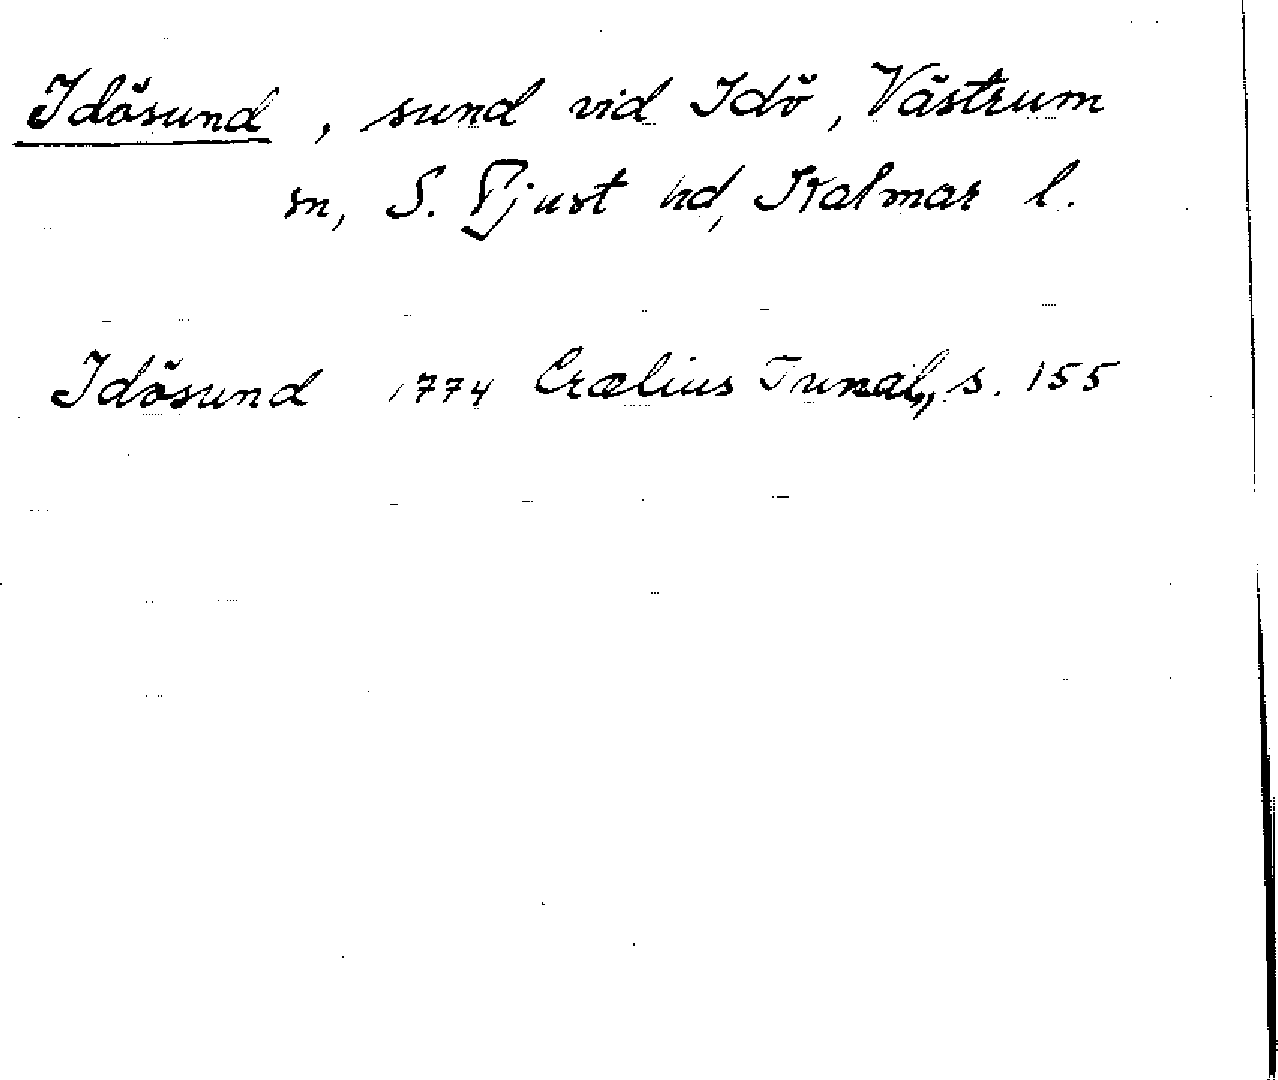 Idösund, sund vid Idö, Västrum
sn, S. Tjust hd, Kalmar l.
Idösund 1774 Crælius Tunal., s. 155